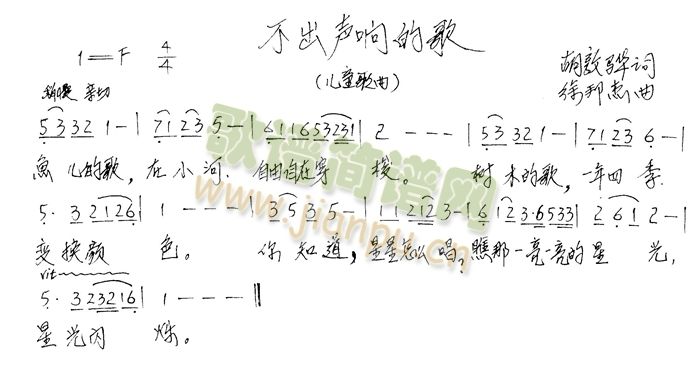 不出声响的歌
1=F 4/4
(儿童歌曲)
胡敦骅词
徐邦杰曲
亲切
5 3 3 2 1 - | 7 1 2 3 5 - | 6 1 1 6 5 3 2 3 1 | 2 - - - | 5 3 3 2 1 - | 7 1 2 3 6 - |
鱼儿的歌，在小河. 自由自在穿梭。 树木的歌，一年四季
5 · 3 2 1 2 6 | 1 - - - | 3 5 3 5 - | 1 1 2 1 2 3 - | 6 1 2 3 · 6 5 3 3 | 2 6 1 2 - |
变换颜色。 你知道，星星怎么唱？瞧那一亮亮的星光，
rit
5 · 3 2 3 2 1 6 | 1 - - - ‖
星光闪烁。
歌谱简谱网
www.jianpu.cn